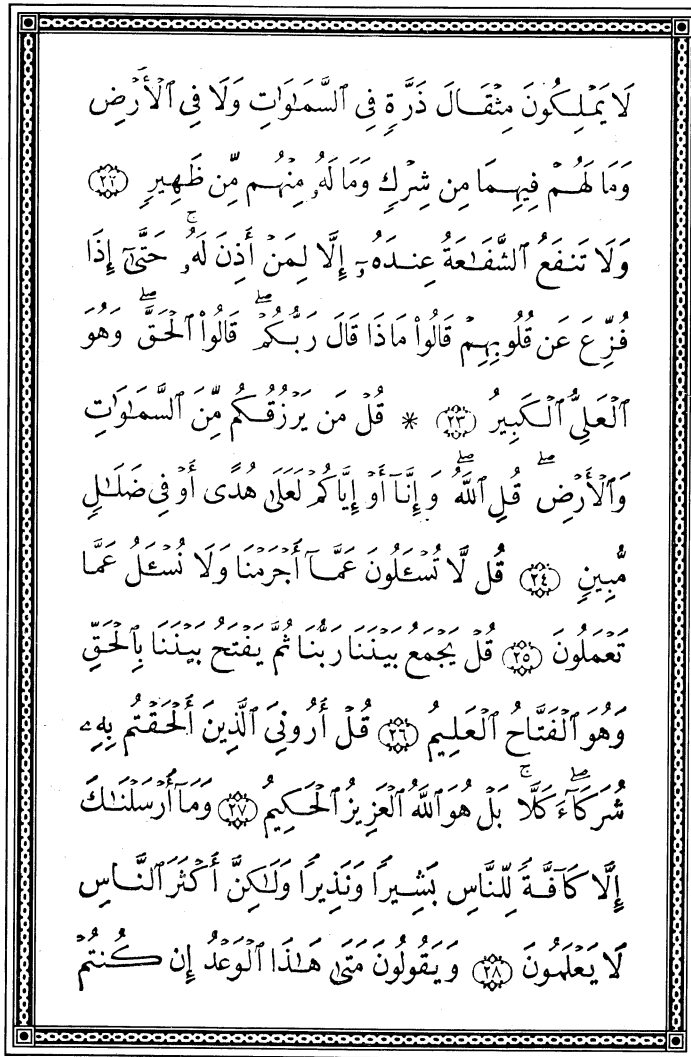 لَا يَمۡلِكُونَ مِثۡقَالَ ذَرَّةٖ فِي ٱلسَّمَٰوَٰتِ وَلَا فِي ٱلۡأَرۡضِ
وَمَا لَهُمۡ فِيهِمَا مِن شِرۡكٖ وَمَا لَهُۥ مِنۡهُم مِّن ظَهِيرٖ ٢٢
وَلَا تَنفَعُ ٱلشَّفَٰعَةُ عِندَهُۥٓ إِلَّا لِمَنۡ أَذِنَ لَهُۥۚ حَتَّىٰٓ إِذَا
فُزِّعَ عَن قُلُوبِهِمۡ قَالُواْ مَاذَا قَالَ رَبُّكُمۡۖ قَالُواْ ٱلۡحَقَّۖ وَهُوَ
ٱلۡعَلِيُّ ٱلۡكَبِيرُ ٢٣ * قُلۡ مَن يَرۡزُقُكُم مِّنَ ٱلسَّمَٰوَٰتِ
وَٱلۡأَرۡضِۖ قُلِ ٱللَّهُۖ وَإِنَّآ أَوۡ إِيَّاكُمۡ لَعَلَىٰ هُدًى أَوۡ فِي ضَلَٰلٖ
مُّبِينٖ ٢٤ قُل لَّا تُسۡـَٔلُونَ عَمَّآ أَجۡرَمۡنَا وَلَا نُسۡـَٔلُ عَمَّا
تَعۡمَلُونَ ٢٥ قُلۡ يَجۡمَعُ بَيۡنَنَا رَبُّنَا ثُمَّ يَفۡتَحُ بَيۡنَنَا بِٱلۡحَقِّ
وَهُوَ ٱلۡفَتَّاحُ ٱلۡعَلِيمُ ٢٦ قُلۡ أَرُونِيَ ٱلَّذِينَ أَلۡحَقۡتُم بِهِۦ
شُرَكَآءَۖ كَلَّاۚ بَلۡ هُوَ ٱللَّهُ ٱلۡعَزِيزُ ٱلۡحَكِيمُ ٢٧ وَمَآ أَرۡسَلۡنَٰكَ
إِلَّا كَآفَّةٗ لِّلنَّاسِ بَشِيرٗا وَنَذِيرٗا وَلَٰكِنَّ أَكۡثَرَ ٱلنَّاسِ
لَا يَعۡلَمُونَ ٢٨ وَيَقُولُونَ مَتَىٰ هَٰذَا ٱلۡوَعۡدُ إِن كُنتُمۡ